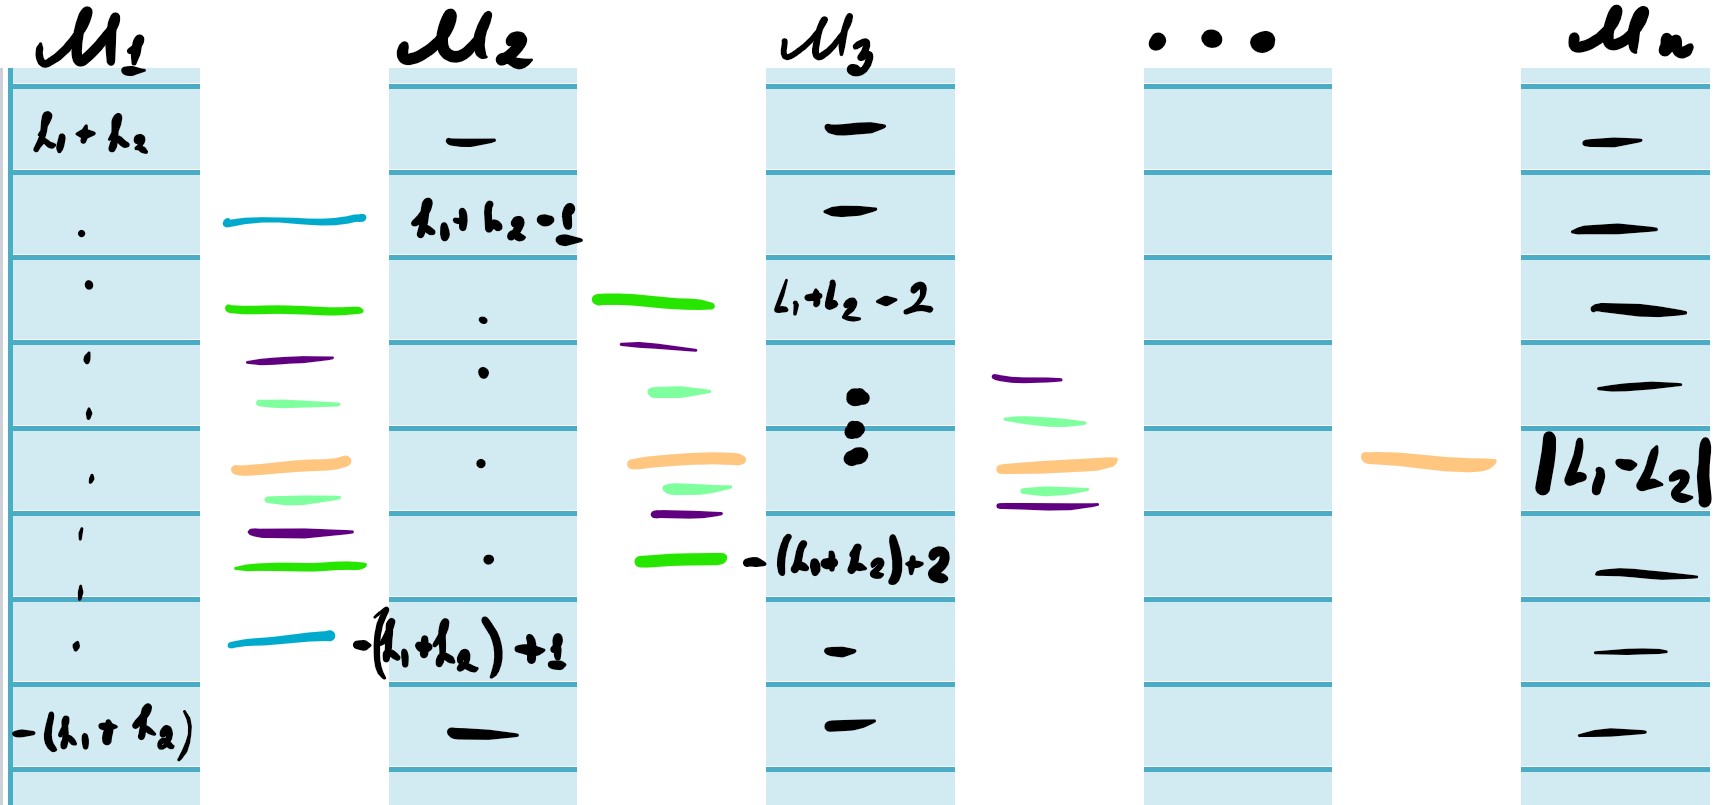 M1 M2 M3 ... Mn
L1 + L2 — — —
. L1 + L2 - 1 — —
. . L1 + L2 - 2 —
. . . —
. . . |L1 - L2|
. . -(L1 + L2) + 2 —
. -(L1 + L2) + 1 — —
-(L1 + L2) — — —